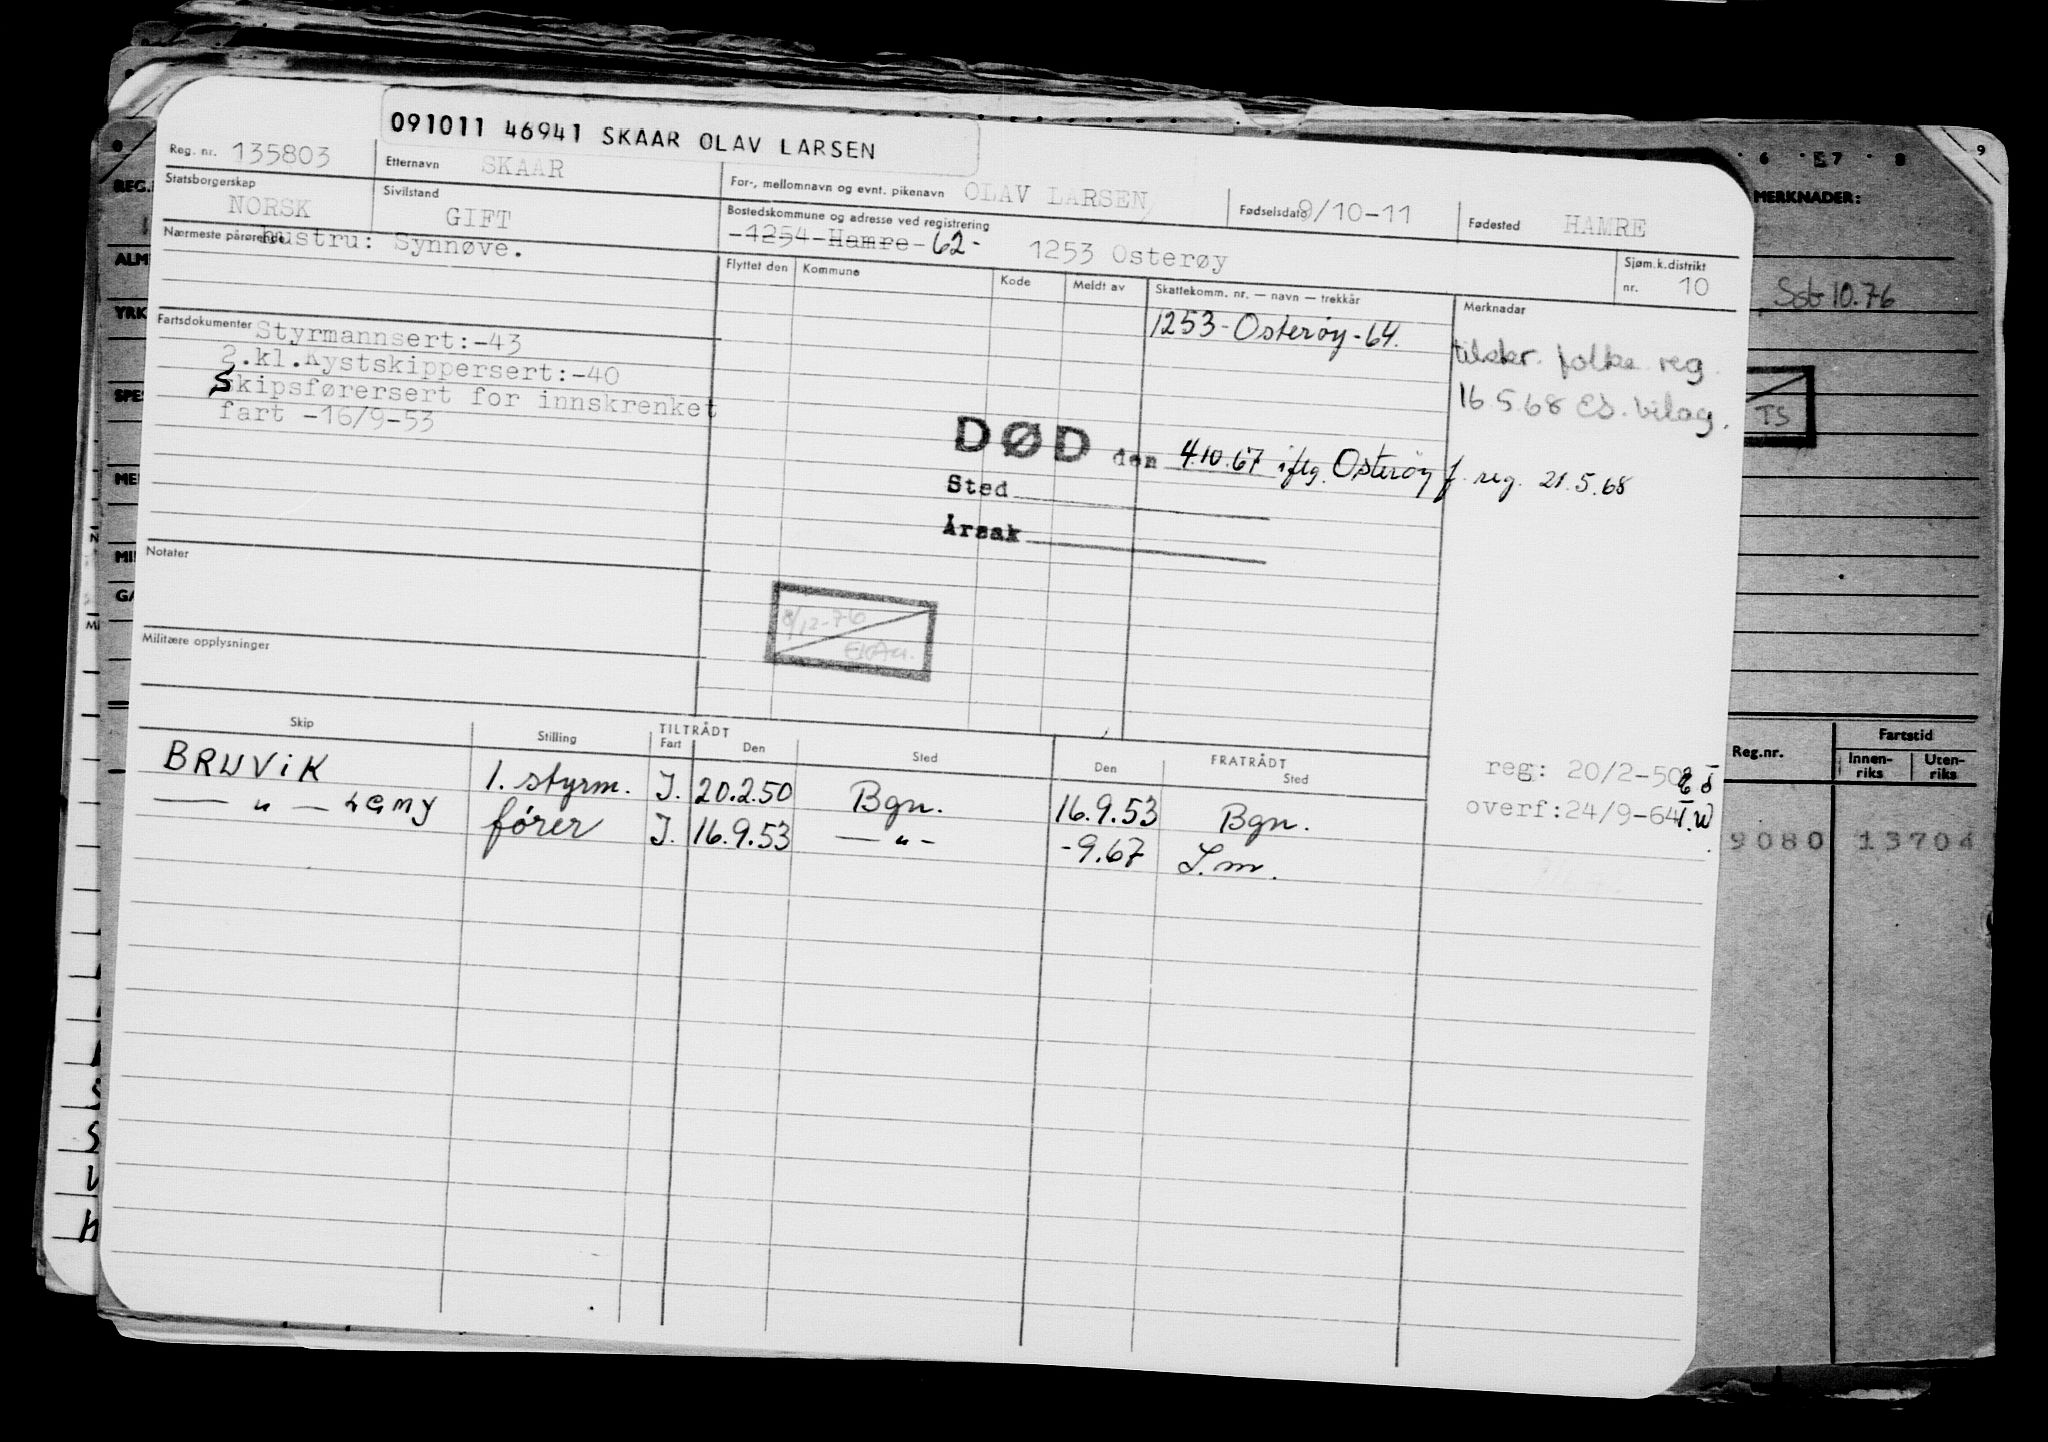 091011 46941 SKAAR OLAV LARSEN
Reg. nr. 135803 Etternavn SKAAR For-, mellomnavn og evnt. pikenavn OLAV LARSEN Fødselsdato 9/10-11 Fødested HAMRE
Statsborgerskap NORSK Sivilstand GIFT Bostedskommune og adresse ved registrering
-1254-Hamre-62- 1253 Osterøy
Nærmeste pårørende hustru: Synnøve.
Sjøm.k.distrikt nr. 10
Flyttet den Kommune Kode Meldt av Skattekomm. nr. — navn — trekkår Merknadar
1253-Osterøy-64.
Fartsdokumenter Styrmannsert:-43
2.kl.Kystskippersert:-40
Skipsførersert for innskrenket
fart -16/9-53
folke reg.
16.5.68 bilag.
DØD den 4.10.67 iflg. Osterøy f. reg. 21.5.68
Sted
Årsak
Notater
8/12-76
Militære opplysninger
TILTRÅDT FRATRÅDT
Skip Stilling Fart Den Sted Den Sted
BRUVIK 1. styrm. I. 20.2.50 Bgn. 16.9.53 Bgn.
— " — fører I. 16.9.53 — " — -9.67
reg: 20/2-50
overf:24/9-64
6 7 8 9
MERKNADER:
10.76
TS
Reg.nr. Fartstid
Innen-riks Uten-riks
9080 13704
REG.
ALM
YRK
SPES